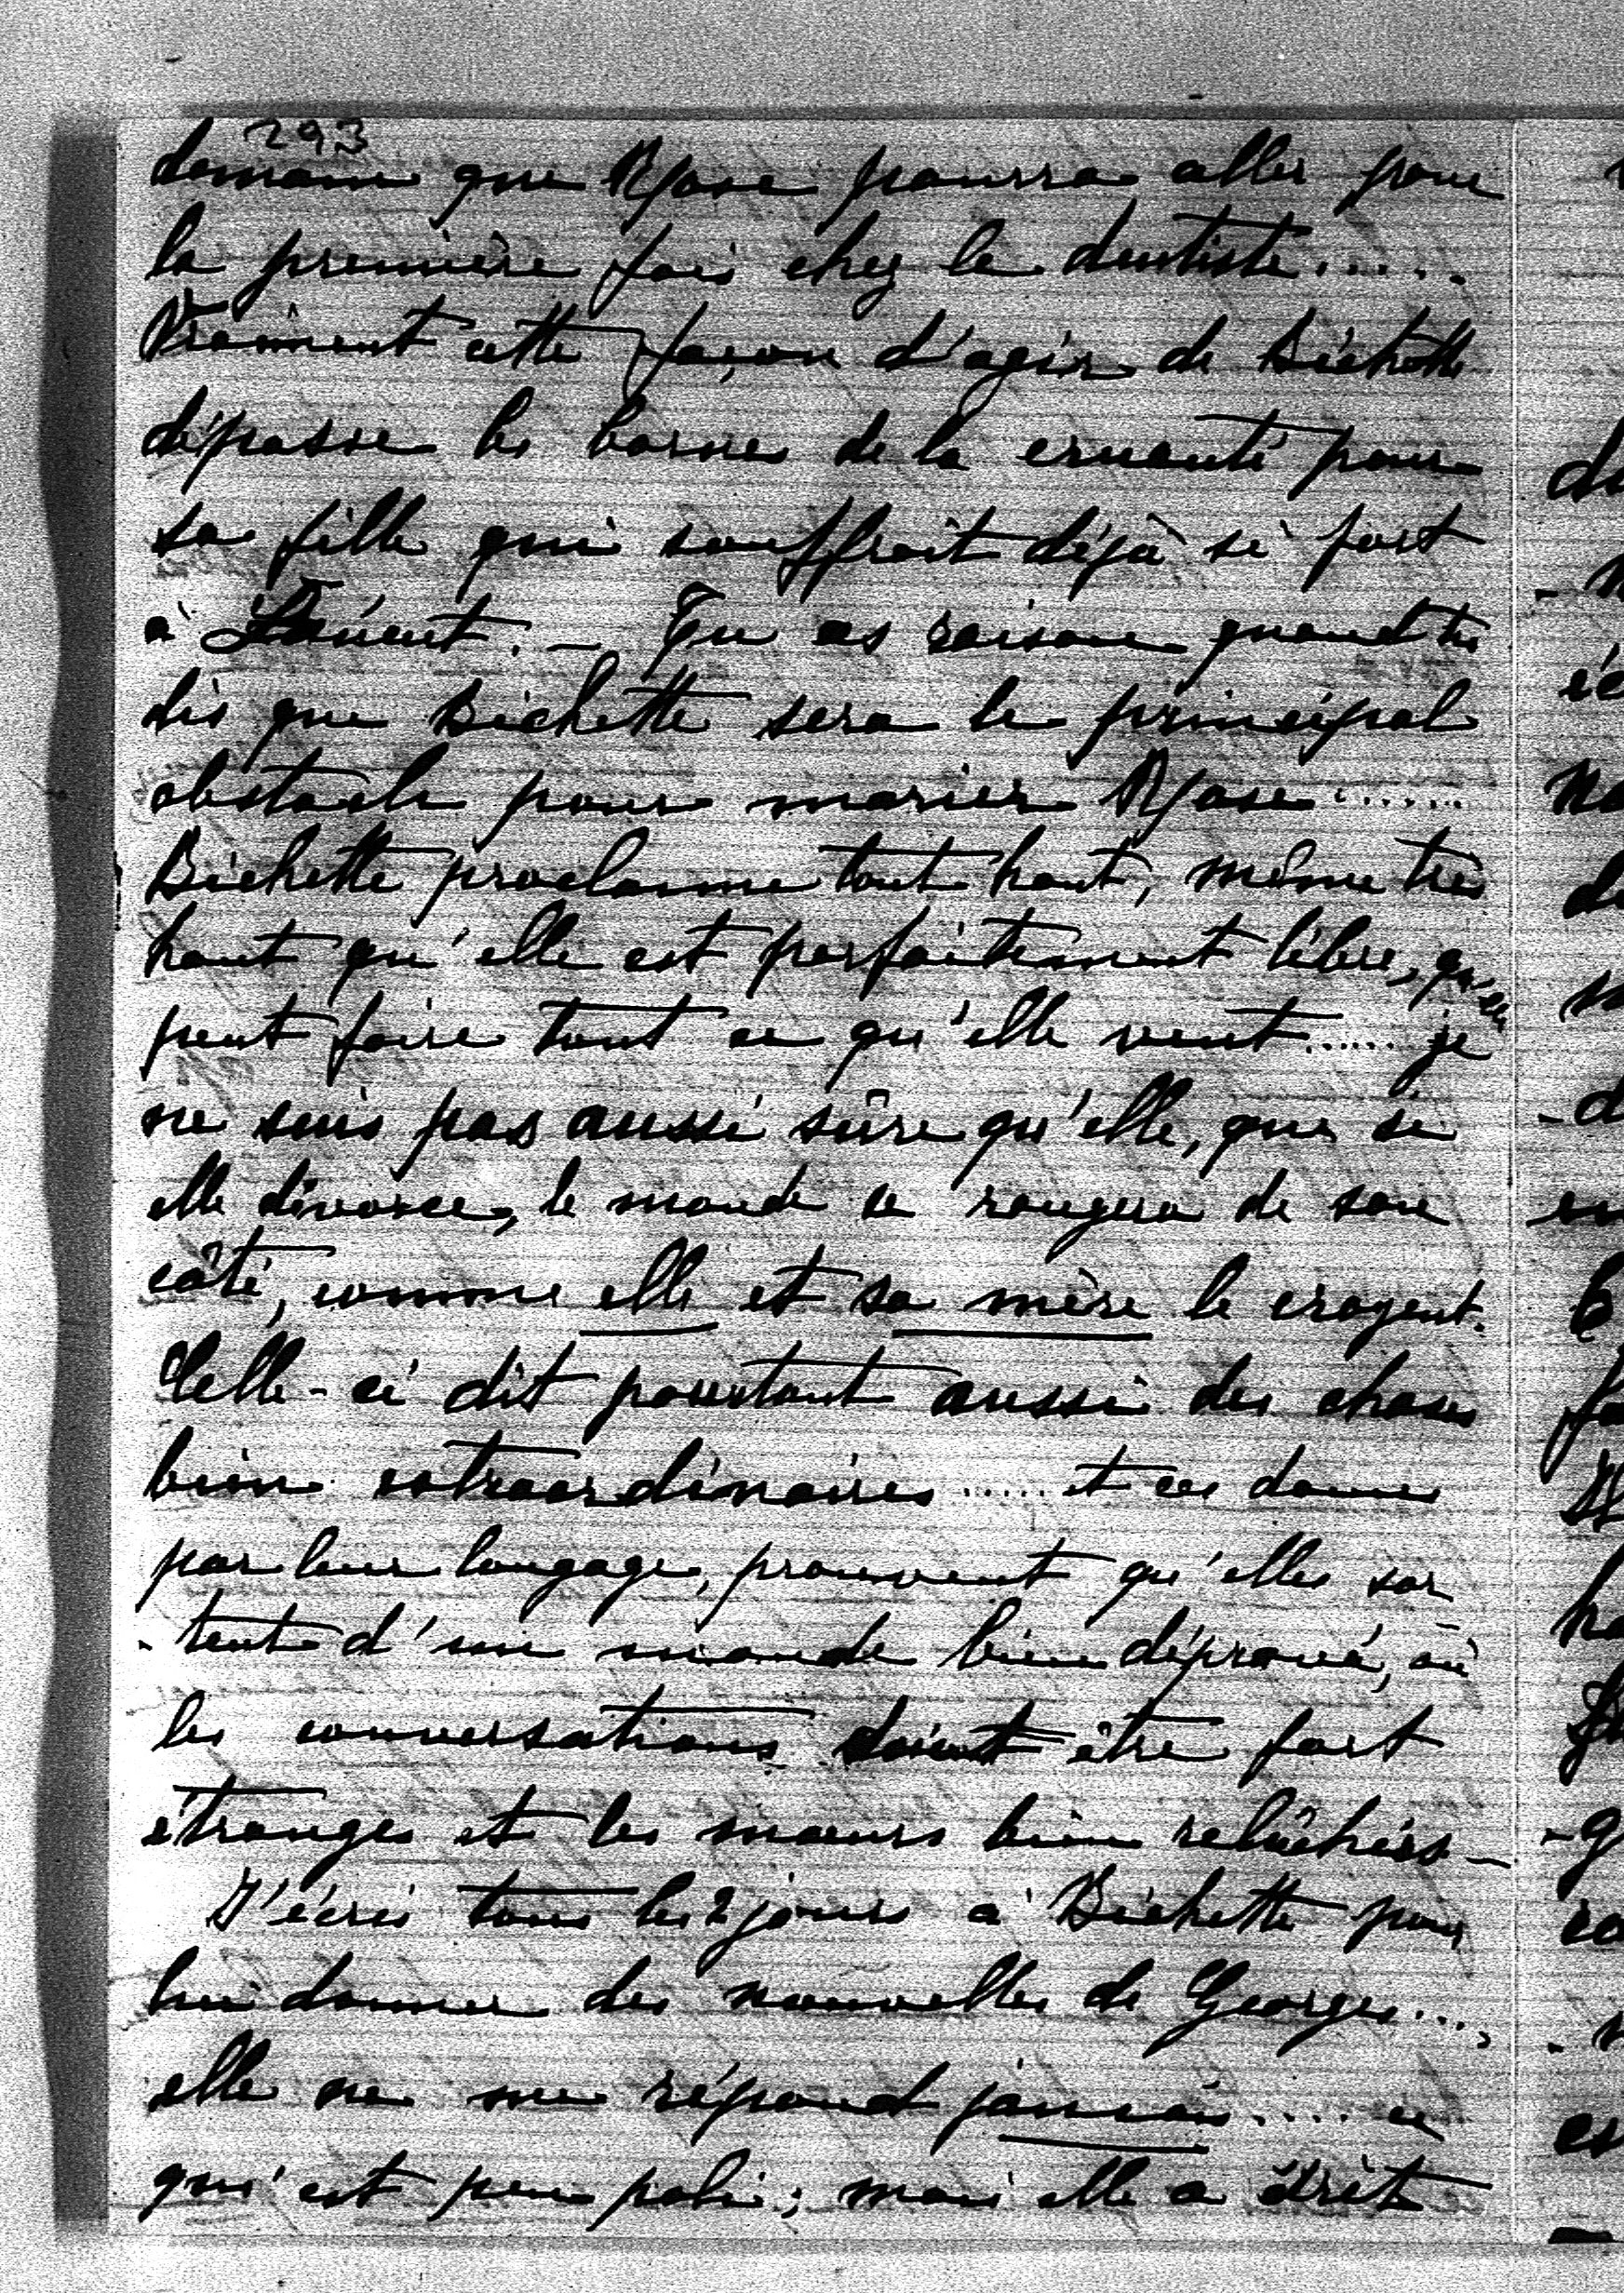 293
demain que Rose pourra aller pour
la première fois chez le dentiste.....
Vraiment cette façon d'agir de Bichette
dépasse les bornes de la cruauté pour
sa fille qui souffrait déjà si fort
à . _ Tu as raison quand tu
dis que Bichette sera le principal
obstacle pour marier Rose......
Bichette proclame tout haut, même très
haut qu'elle est parfaitement libre, qu'elle
peut faire tout ce qu'elle veut...... je
ne suis pas aussi sûre qu'elle, que si
elle divorce, le monde se rangera de son
côté, comme elle et sa mère le croyent.
Celle-ci dit pourtant aussi des choses
bien extraordinaires..... et ces dames
par leur langage, prouvent qu'elles sor
-tent d'un monde bien dépravé, où
les conversations doivent être fort
étranges et les mœurs bien relâchées _
J'écris tous les 2 jours à Bichette pour
lui donner des nouvelles de Georges....
elle ne me répond jamais.... ce
qui est peu poli; mais elle a écrit